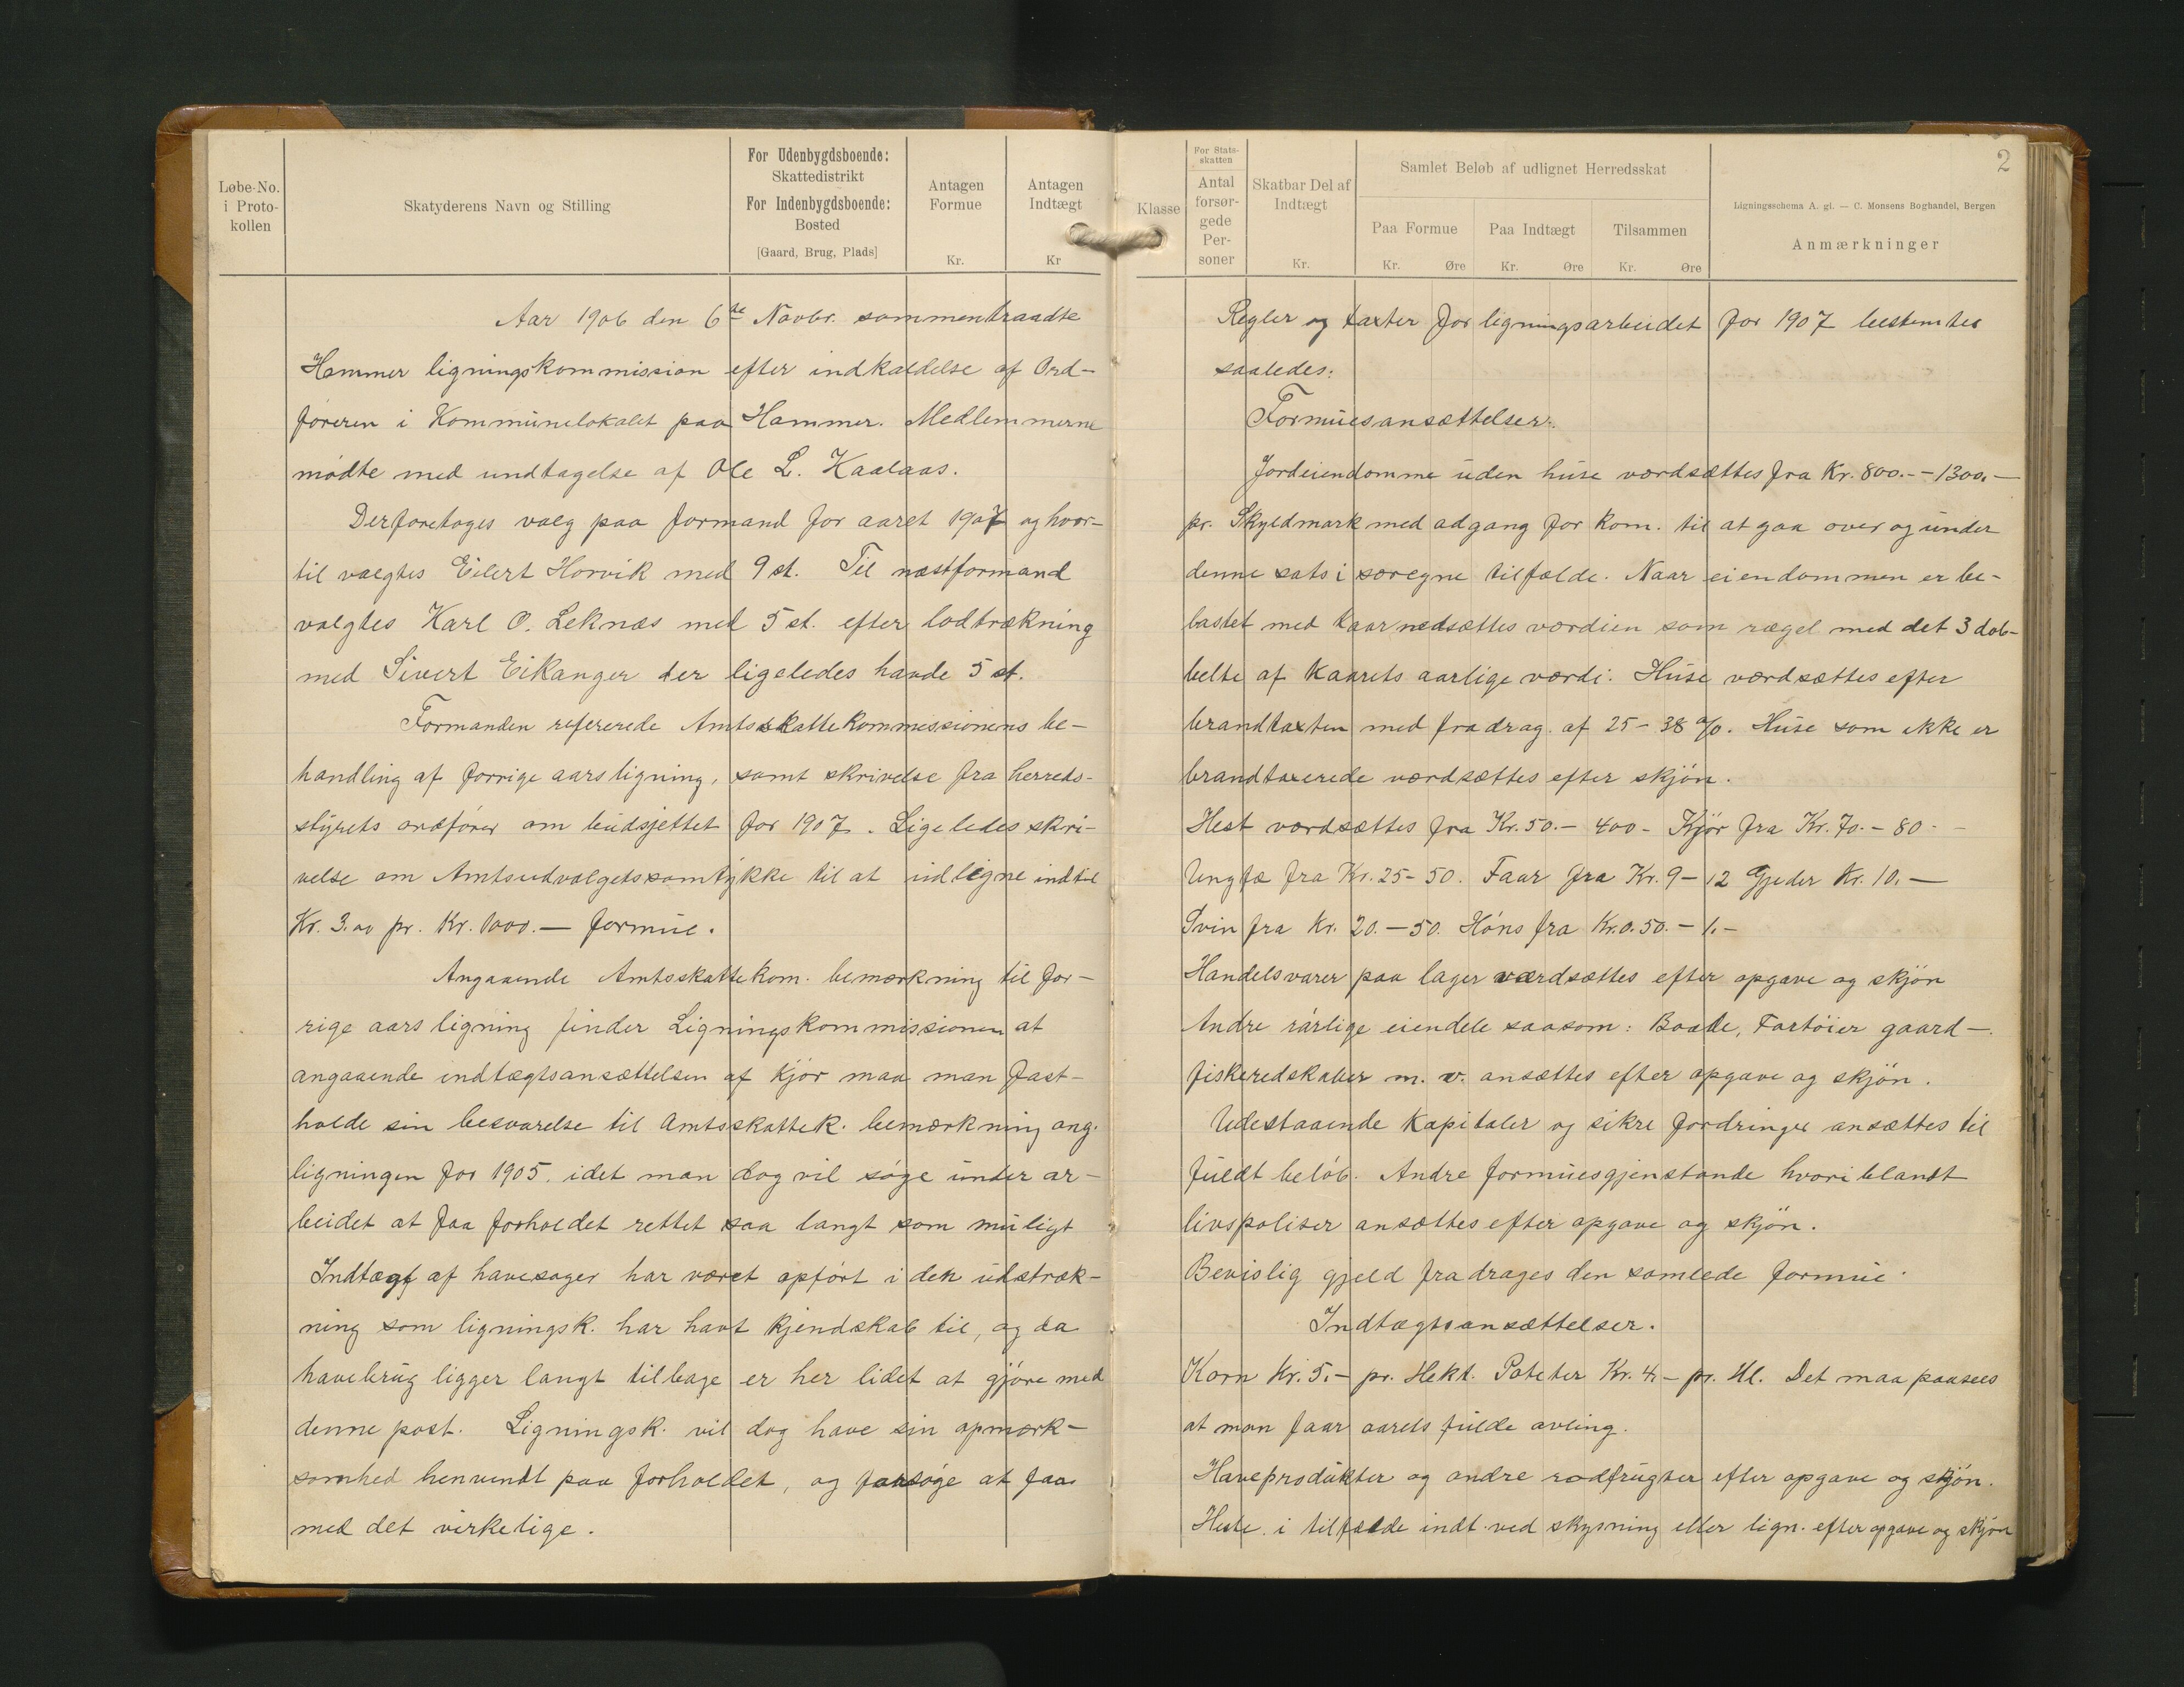 Løbe-No.
i Proto-
kollen
Skatyderens Navn og Stilling
For Udenbygdsboende:
Skattedistrikt
For Indenbygdsboende:
Bosted
[Gaard, Brug, Plads]
Antagen
Formue
Kr.
Antagen
Indtægt
Kr
Aar 1906 den 6te Novbr. sammentraadte
Hammer ligningskommission efter indkaldelse af Ord-
føreren i Kommunelokalet paa Hammer. Medlemmerne
mødte med undtagelse af Ole L. Kaalaas.
Der foretoges valg paa formand for aaret 1907 og hvor-
til valgtes Eilert Horvik med 9 st. Til næstformand
valgtes Karl O. Leknæs med 5 st. efter lodtrækning
med Sivert Eikanger der ligeledes havde 5 st.
Formanden refererede Amtsskattekommissionens be-
handling af forrige aars ligning, samt skrivelse fra herreds-
styrets ordfører om budsjettet for 1907. Ligeledes skri-
velse om Amtsudvalgets samtykke til at udligne indtil
Kr. 3.00 pr. Kr. 1000.— formue.
Angaaende Amtsskattekom. bemærkning til for-
rige aars ligning finder Ligningskommissionen at
angaaende indtægtsansættelsen af kjør maa man fast-
holde sin besvarelse til Amtsskattek. bemærkning ang.
ligningen for 1905, idet man dog vil søge under ar-
beidet at faa forholdet rettet saa langt som muligt
Indtægt af havesager har været opført i den udstræk-
ning som ligningsk. har havt kjendskab til, og da
havebrug ligger langt tilbage er her lidet at gjøre med
denne post. Ligningsk. vil dog have sin opmærk-
somhed henvendt paa forholdet, og forsøge at faa
med det virkelige.
2
Klasse
For Stats-
skatten
Antal
forsør-
gede
Per-
soner
Skatbar Del af
Indtægt
Kr.
Samlet Beløb af udlignet Herredsskat
Paa Formue
Kr. Øre
Paa Indtægt
Kr. Øre
Tilsammen
Kr. Øre
Ligningsschema A. gl. — C. Monsens Boghandel, Bergen
Anmærkninger
Regler og taxter for ligningsarbeidet for 1907 bestemtes
saaledes:
Formuesansættelser:
Jordeiendomme uden huse værdsættes fra Kr. 800.- - 1300.—
pr. Skyldmark med adgang for kom. til at gaa over og under
denne sats i særegne tilfælde. Naar eiendommen er be-
bastet med kaar nedsættes værdien som rægel med det 3 dob-
belte af kaarets aarlige værdi. Huse værdsættes efter
brandtaxten med fradrag af 25 - 38 %. Huse som ikke er
brandtaxerede værdsættes efter skjøn.
Hest værdsættes fra Kr. 50.— 400 - Kjør fra Kr. 70.- 80 - -
Ungfæ fra Kr. 25 - 50. Faar fra Kr. 9 - 12 Gjeder Kr. 10.—
Svin fra Kr. 20.— 50. Høns fra Kr. 0.50.— 1.—
Handelsvarer paa lager værdsættes efter opgave og skjøn
Andre rørlige eiendele saasom: Baade, Fartøier gaard-
fiskeredskaber m. v. ansættes efter opgave og skjøn.
Udestaaende kapitaler og sikre fordringer ansættes til
fuldt beløb. Andre formuesgjenstande hvoriblandt
livspoliser ansættes efter opgave og skjøn.
Bevislig gjeld fradrages den samlede formue.
Indtægtsansættelser.
Korn Kr. 5.— pr. Hekt. Poteter Kr. 4.— pr. Hl. Det maa paasees
at man faar aarets fulde avling.
Haveprodukter og andre rodfrugter efter opgave og skjøn.
Heste i tilfælde indt. ved skysning eller lign. efter opgave og skjøn